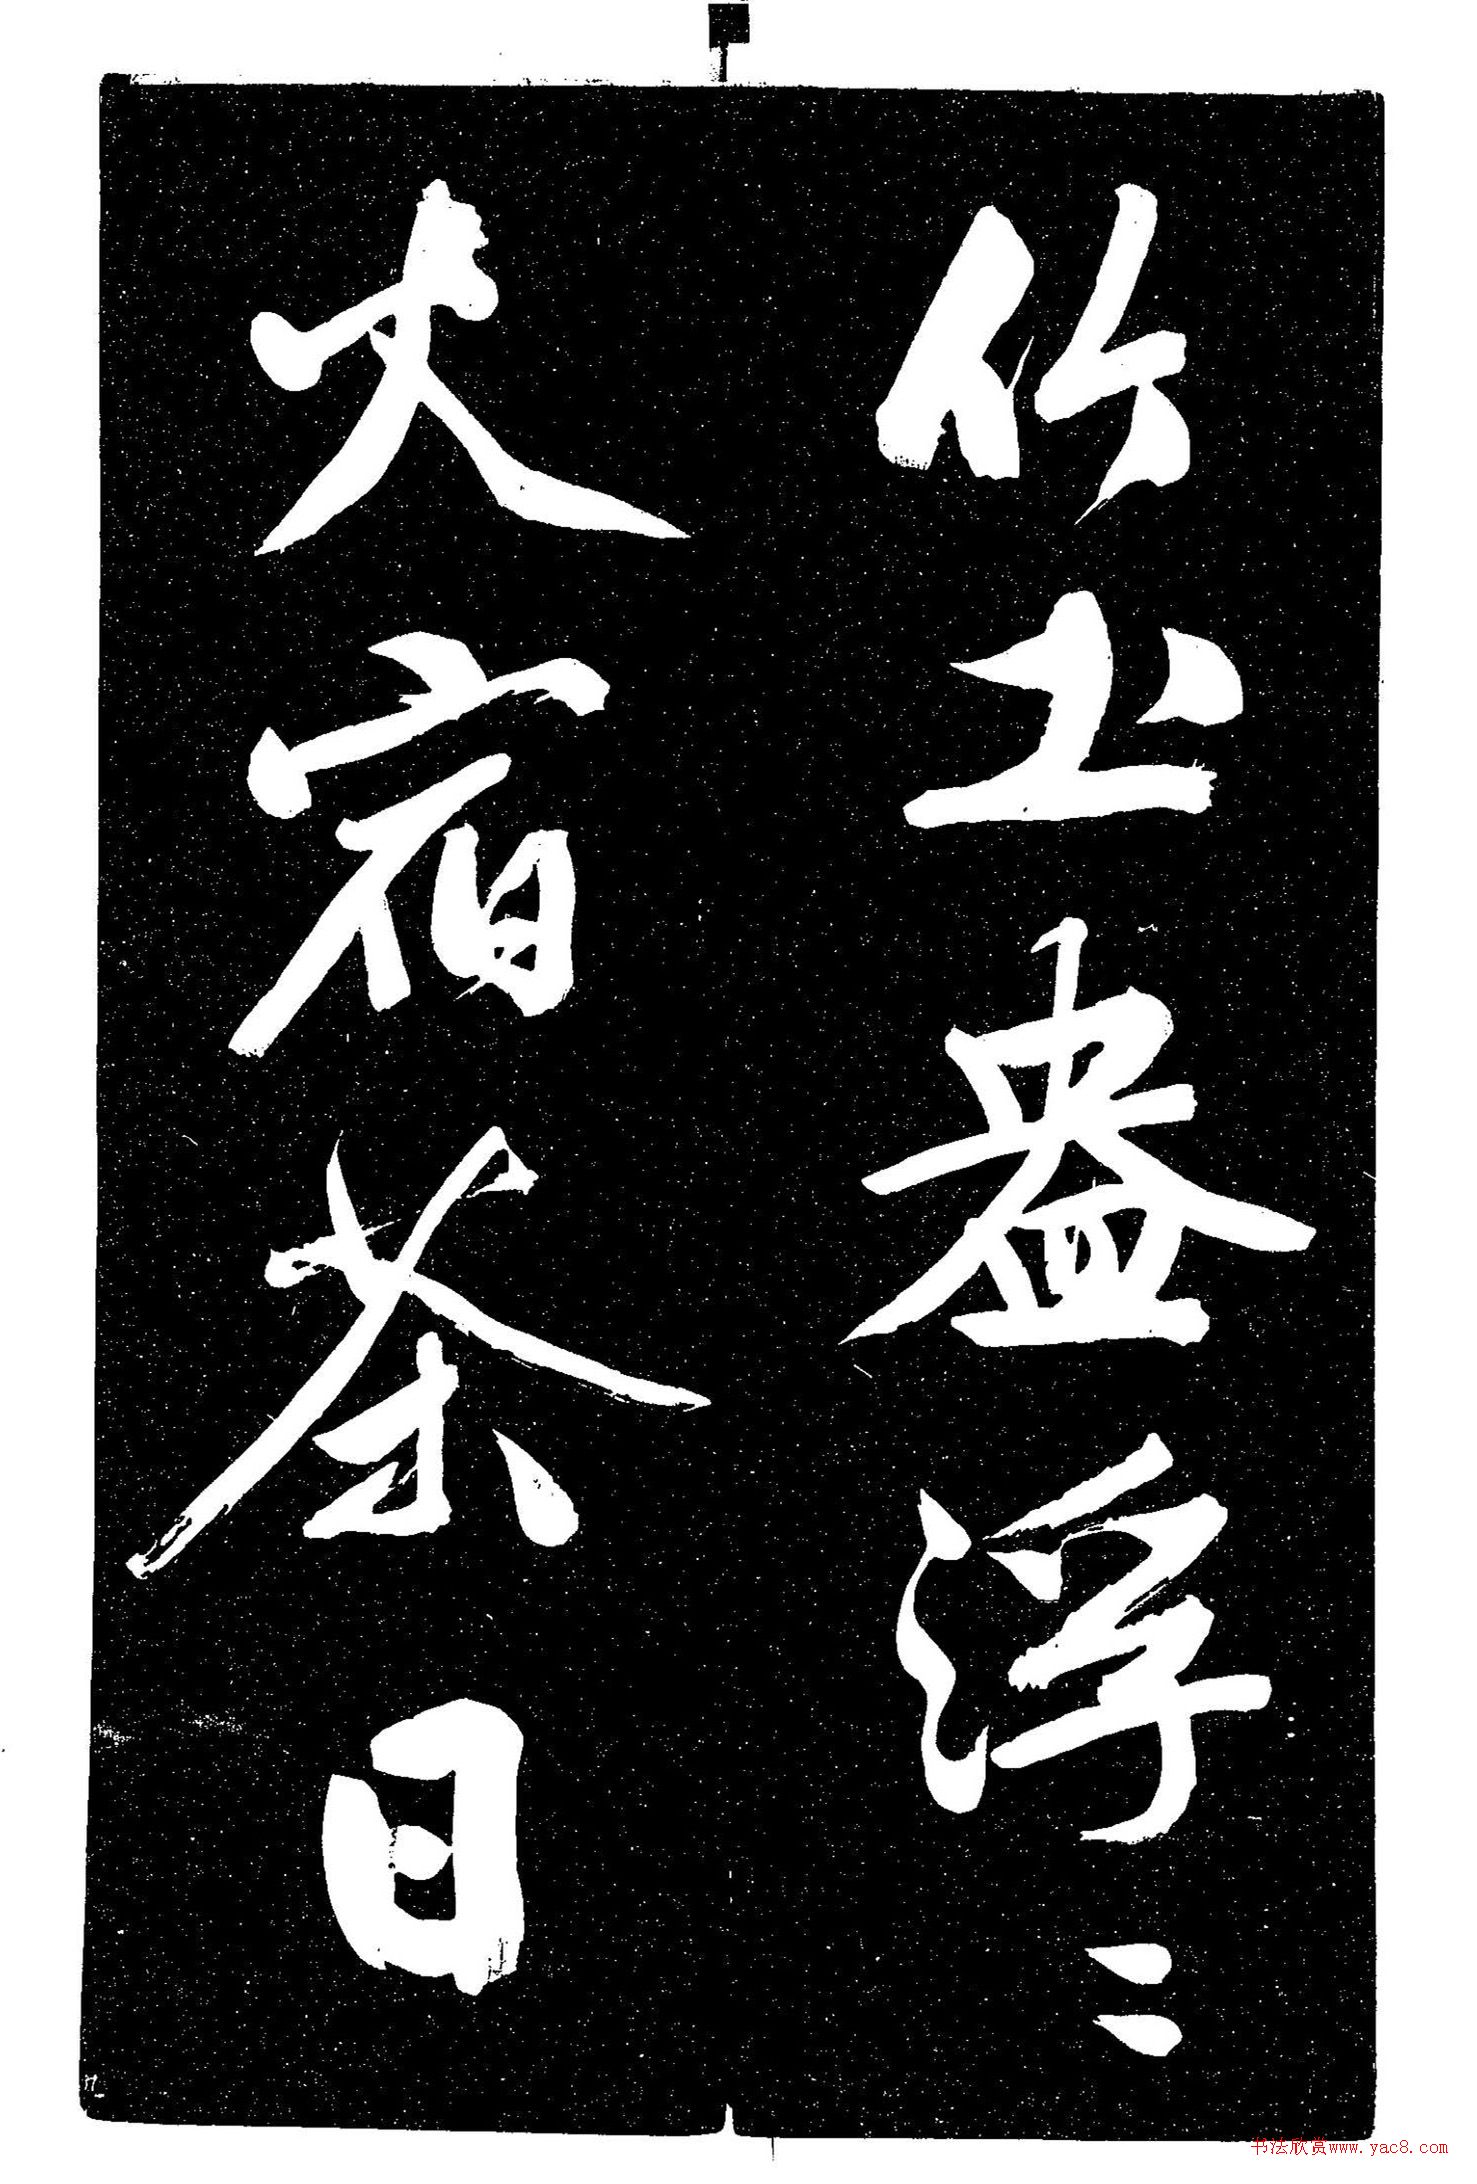 竹土盎浮〻
火宿茶日
书法欣赏www.yac8.com